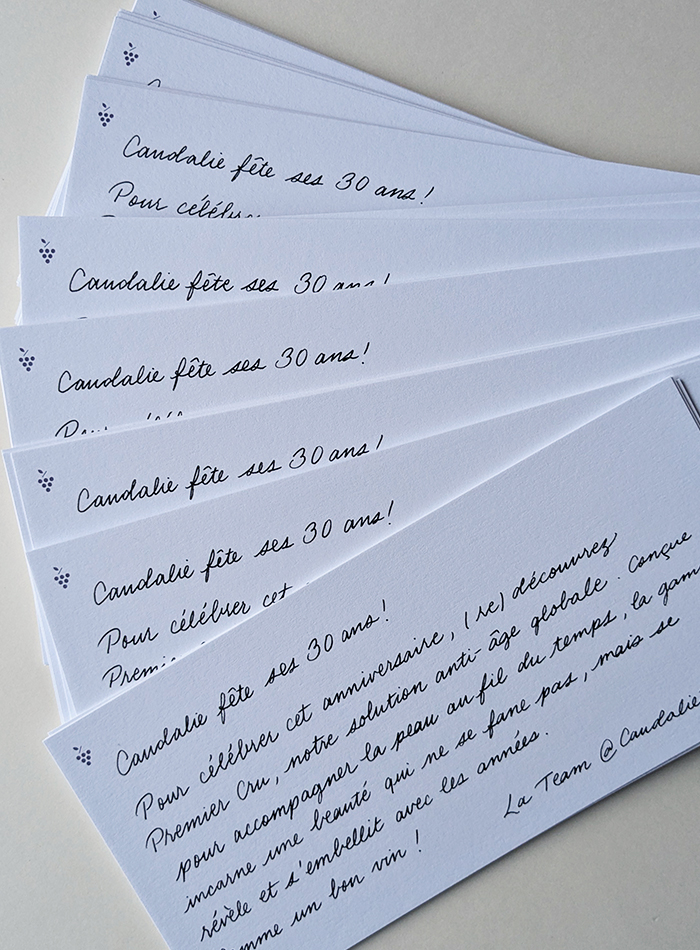 Caudalie fête ses 30 ans !
Pour célébr
Caudalie fête ses 30 ans !
Caudalie fête ses 30 ans !
Caudalie fête ses 30 ans !
Caudalie fête ses 30 ans !
Pour célébrer cet
Premi
Caudalie fête ses 30 ans !
Pour célébrer cet anniversaire, (re) découvrez
Premier Cru, notre solution anti-âge globale. Conçue
pour accompagner la peau au fil du temps, la gam
incarne une beauté qui ne se fane pas, mais se
révèle et s'embellit avec les années.
comme un bon vin !
La Team @Caudalie